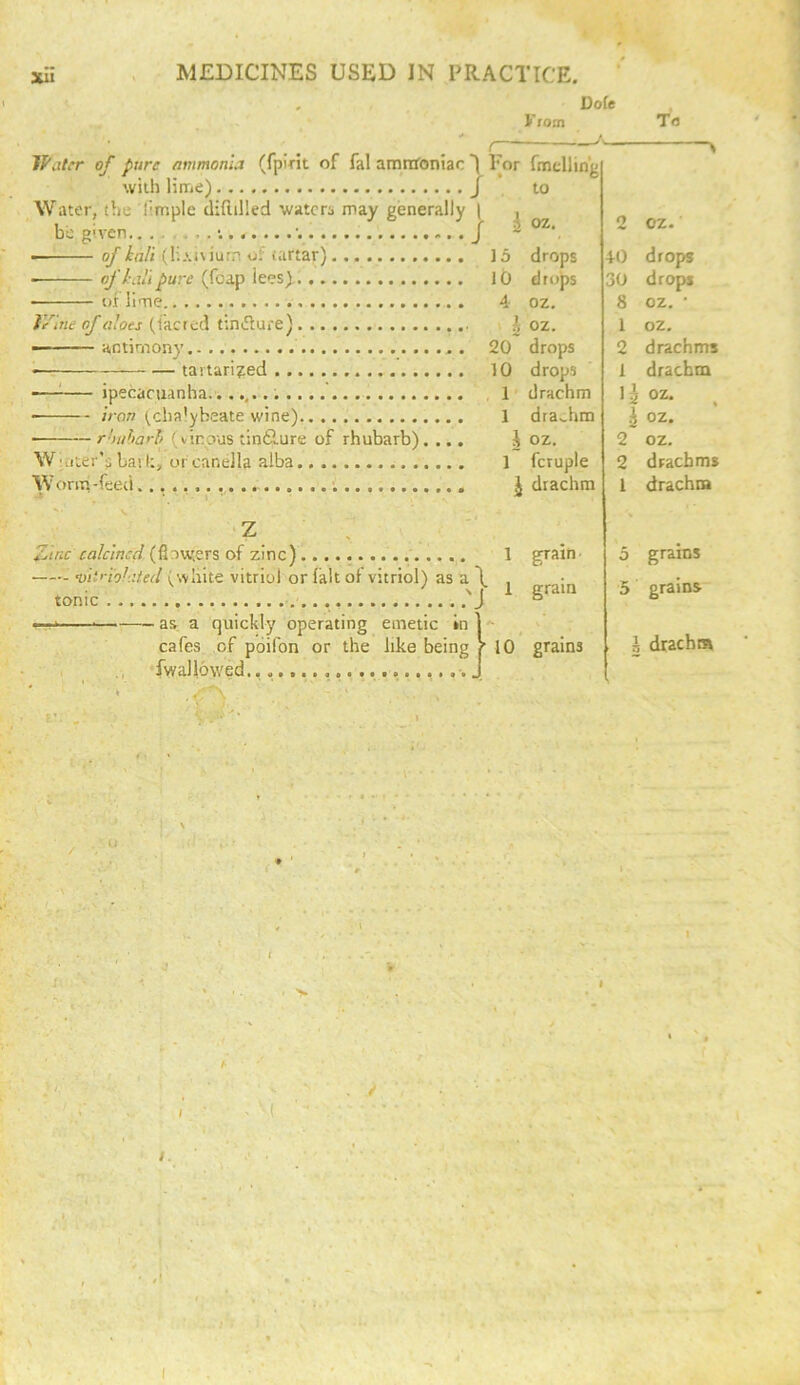 xii MEDICINES USED IN PRACTICE.
Dose
From To
Water of pure ammonia (spirit of sal ammoniac } For smelling
with lime)........................ }
to
Water, the simple distilled waters may generally } ½ oz. 2 oz.
be given............................ }
——— of kali (lixivium of tartar)............ 15 drops 40 drops
——— of kali pure (soap lees)............... 10 drops 30 drops
——— of lime............................ 4 oz. 8 oz.
Wine of aloes (sacred tincture)................ ½ oz. 1 oz.
——— antimony.......................... 20 drops 2 drachms
——— — tartarized.................. 10 drops 1 drachm
——— ipecacuanha........................ 1 drachm 1½ oz.
——— iron (chalybeate wine)................ 1 drachm ½ oz.
——— rhubarb (vinous tincture of rhubarb).... ½ oz. 2 oz.
Winter's bark, or canella alba................ 1 scruple 2 drachms
Worm-seed................................ ½ drachm 1 drachm
Z
Zinc calcined (flowers of zinc)................ 1 grain 5 grains
—— vitriolated (white vitriol or salt of vitriol) as a } 1 grain 5 grains
tonic.................................. }
——— — as a quickly operating emetic in }
cases of poison or the like being } 10 grains ½ drachm
swallowed...................... }